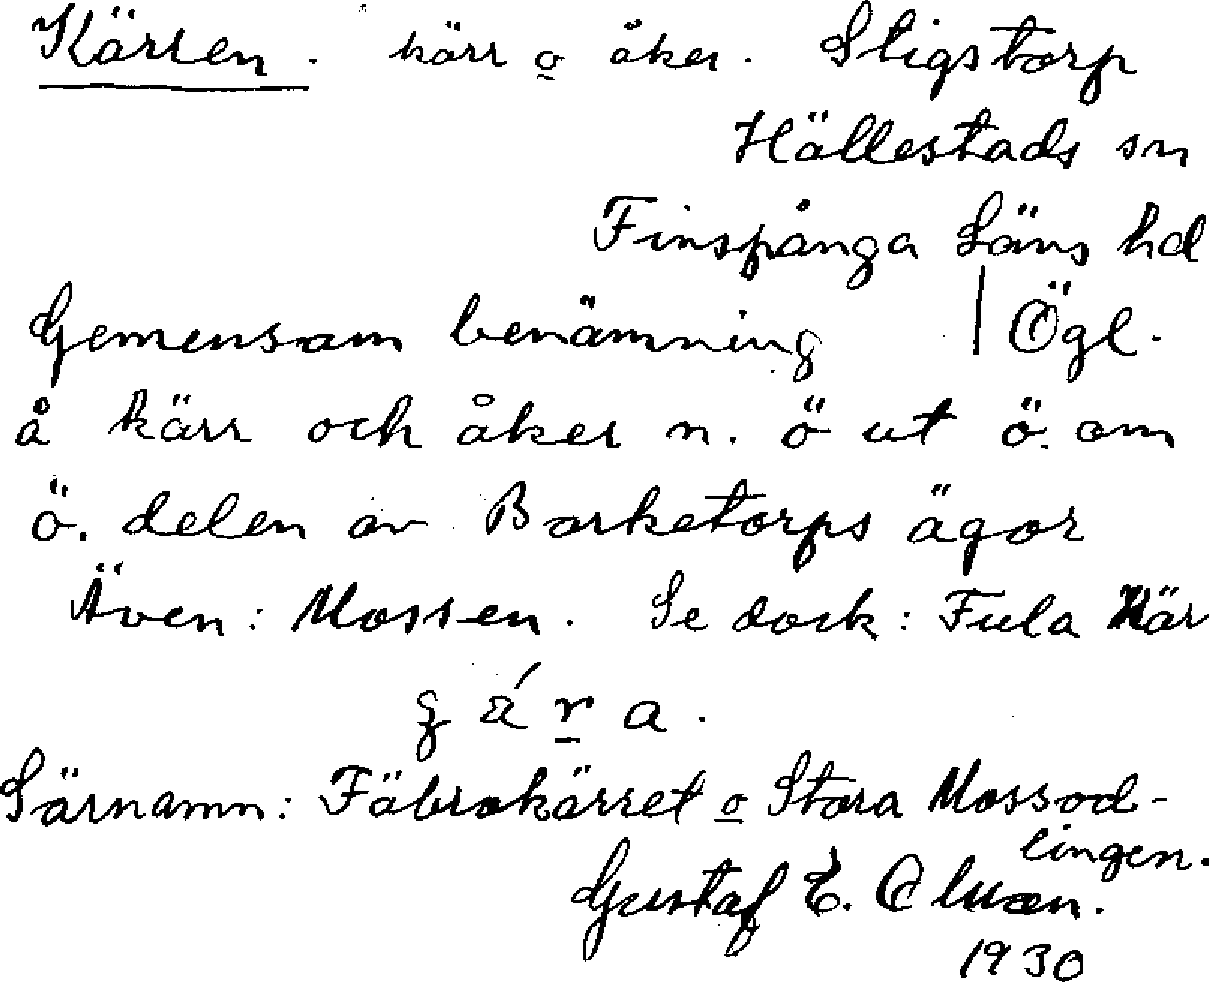 Kärren. kärr o åker. Stigstorp
Hällestads sn
Finspånga Läns hd
Gemensam benämning | Ögl.
å kärr och åker n. ö ut ö. om
ö. delen av Barketorps ägor
Även: Mossen. Se dock: Fula Kär
Särnamn: Fäbrokärret o Stora Mossod-
lingen.
Gustaf E.
1930